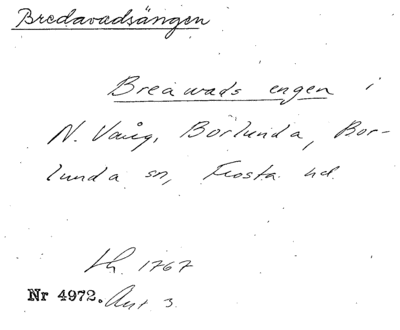 Bredavadsängen
Breawads engen i
N. Vång, Borlunda, Bor-
lunda sn, Frosta hd
Lh. 1767
Nr 4972. Akt 3.